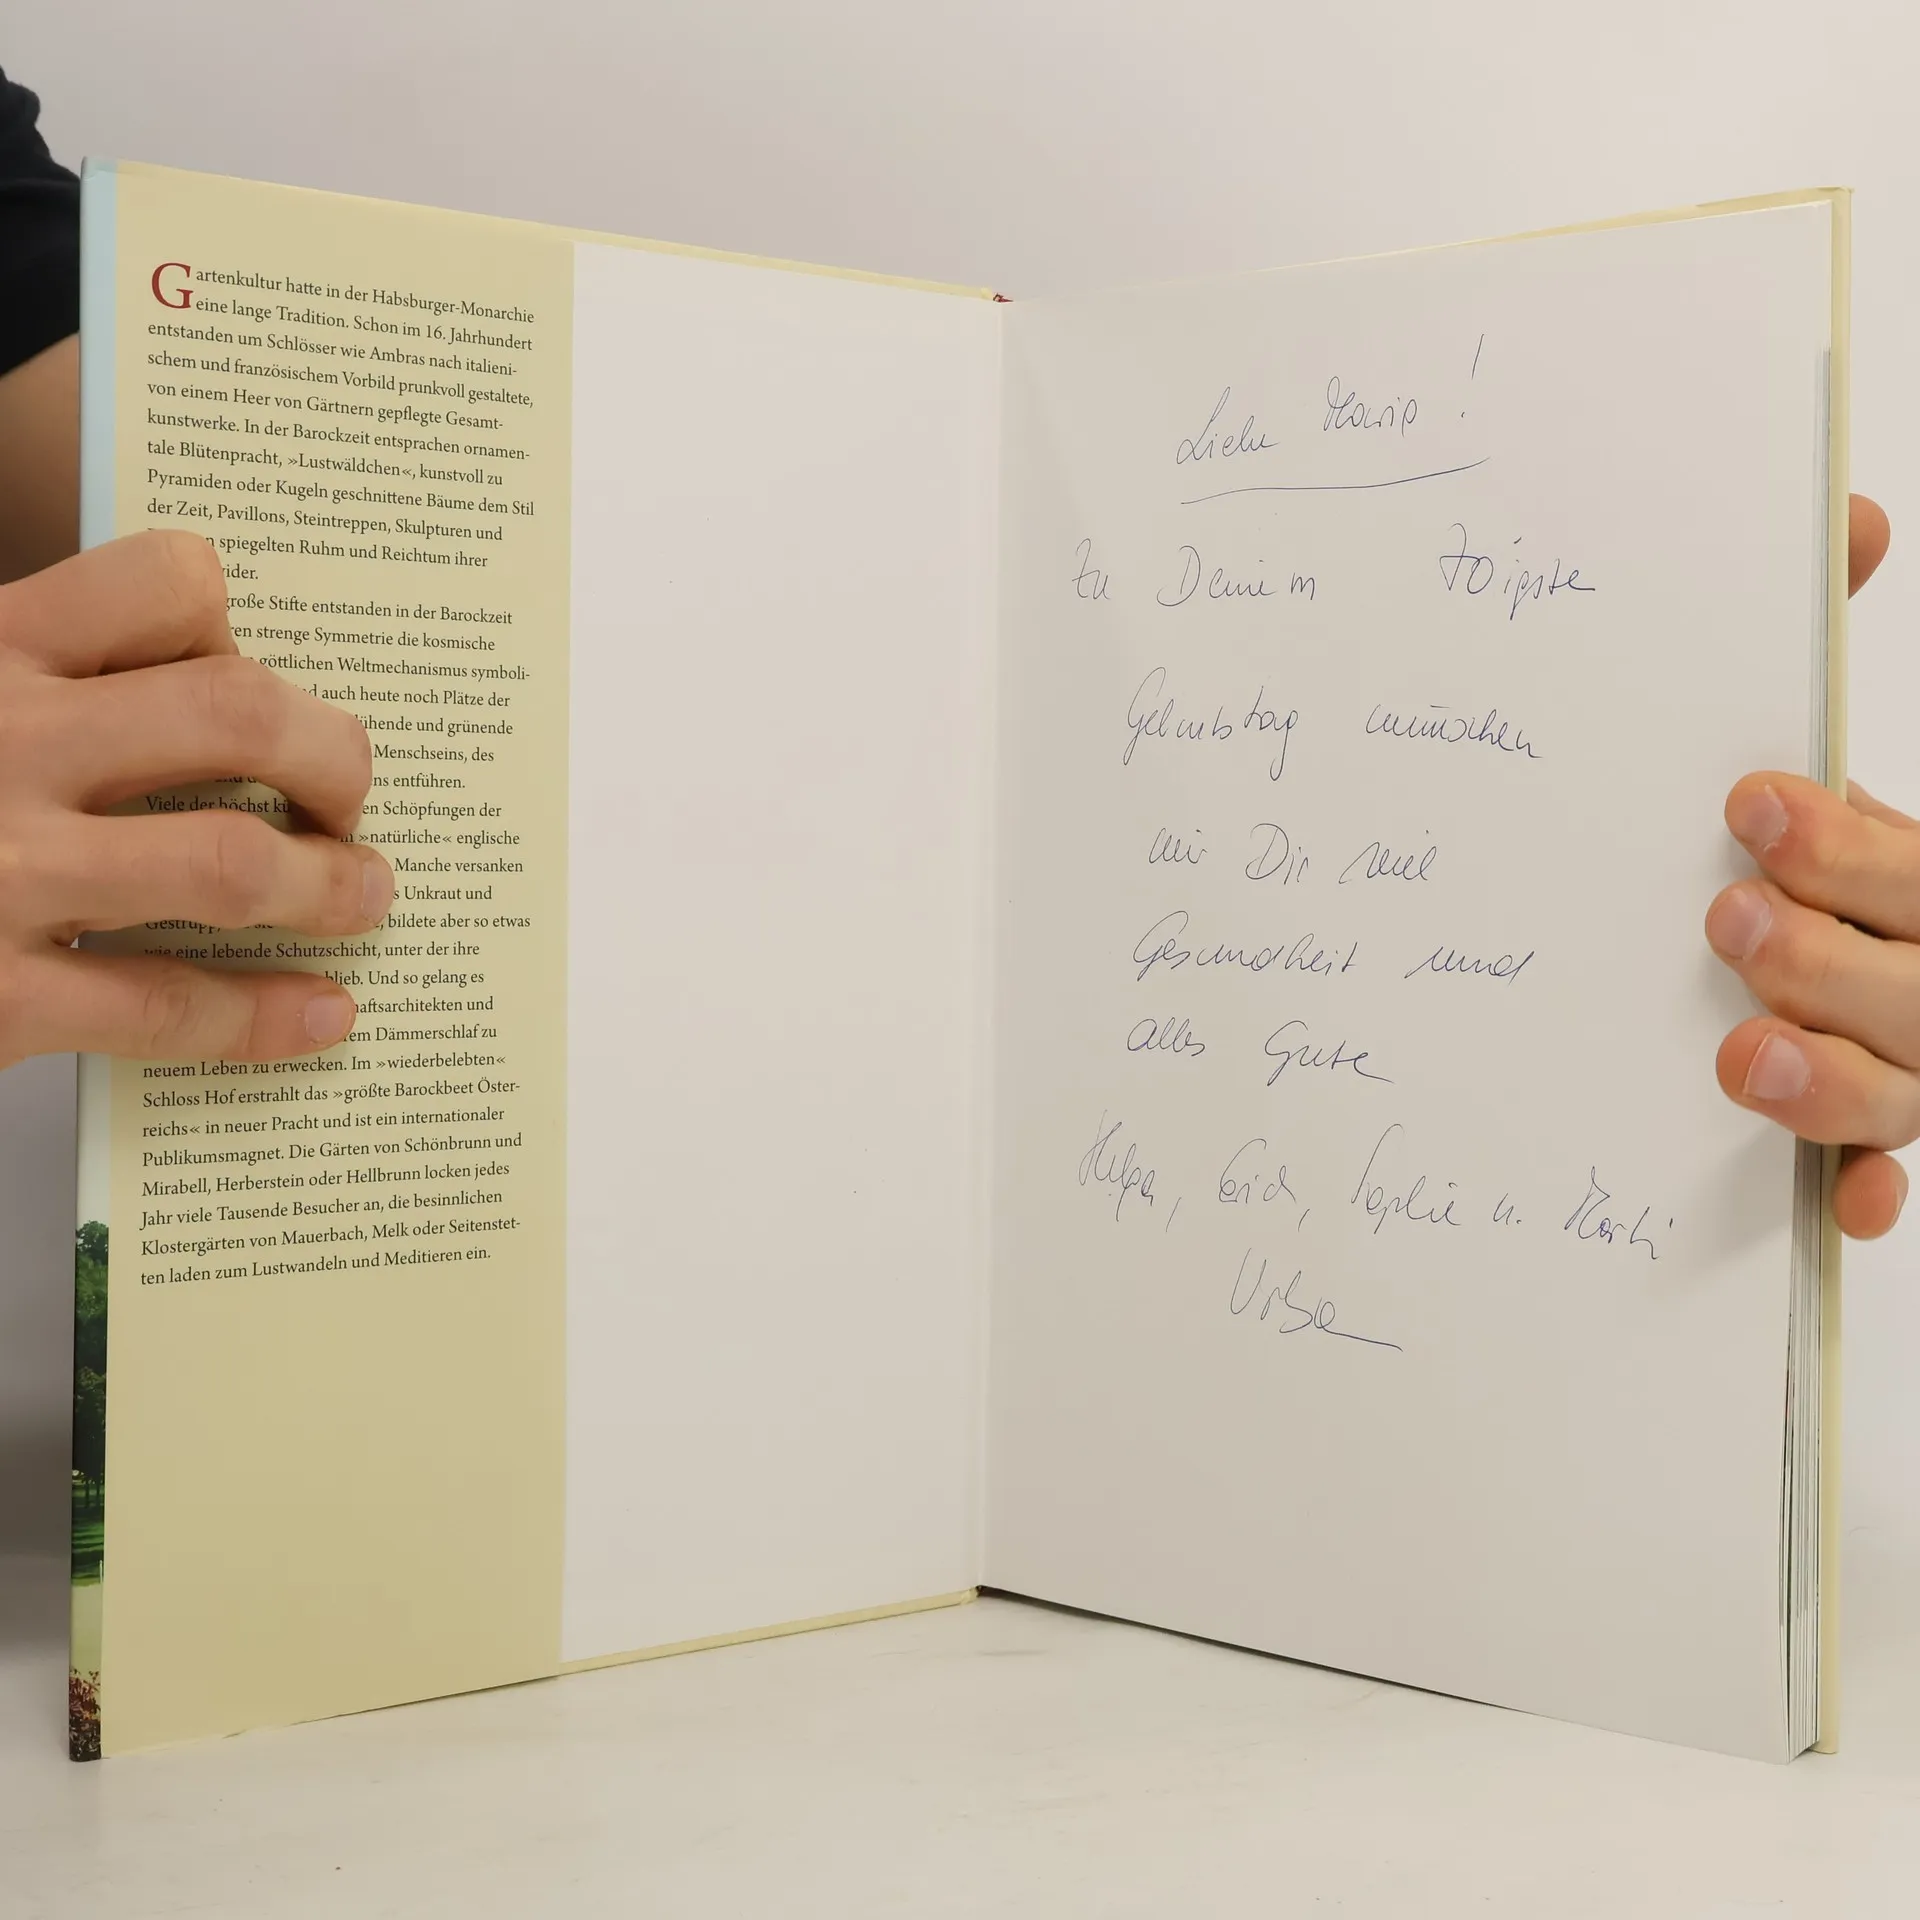 Gartenkultur hatte in der Habsburger-Monarchie
eine lange Tradition. Schon im 16. Jahrhundert
entstanden um Schlösser wie Ambras nach italieni-
schem und französischem Vorbild prunkvoll gestaltete,
von einem Heer von Gärtnern gepflegte Gesamt-
kunstwerke. In der Barockzeit entsprachen ornamen-
tale Blütenpracht, »Lustwäldchen«, kunstvoll zu
Pyramiden oder Kugeln geschnittene Bäume dem Stil
der Zeit, Pavillons, Steintreppen, Skulpturen und
spiegelten Ruhm und Reichtum ihrer
große Stifte entstanden in der Barockzeit
strenge Symmetrie die kosmische
göttlichen Weltmechanismus symboli-
auch heute noch Plätze der
und grünende
Menschseins, des
entführen.
Viele der höchst Schöpfungen der
»natürliche« englische
Manche versanken
Unkraut und
bildete aber so etwas
wie eine lebende Schutzschicht, unter der ihre
blieb. Und so gelang es
und
Dämmerschlaf zu
neuem Leben zu erwecken. Im »wiederbelebten«
Schloss Hof erstrahlt das »größte Barockbeet Öster-
reichs« in neuer Pracht und ist ein internationaler
Publikumsmagnet. Die Gärten von Schönbrunn und
Mirabell, Herberstein oder Hellbrunn locken jedes
Jahr viele Tausende Besucher an, die besinnlichen
Klostergärten von Mauerbach, Melk oder Seitenstet-
ten laden zum Lustwandeln und Meditieren ein.
Liebe Maria!
Zu Deinem
Geburtstag wünschen
wir Dir viel
Gesundheit und
alles Gute
Helga, Erich, Sophie u.